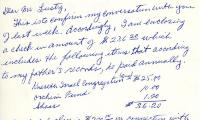 Dear Mr. Lustig,
This is to confirm my conversation with you
of last week. Accordingly, I am enclosing
a check in amount of $236.20 which
includes the following items that according
to my father's records, he paid annually.
Small Congregation $25.00
Orphan Fund 10.00
Shaas 1.00
$36.20
in connection with